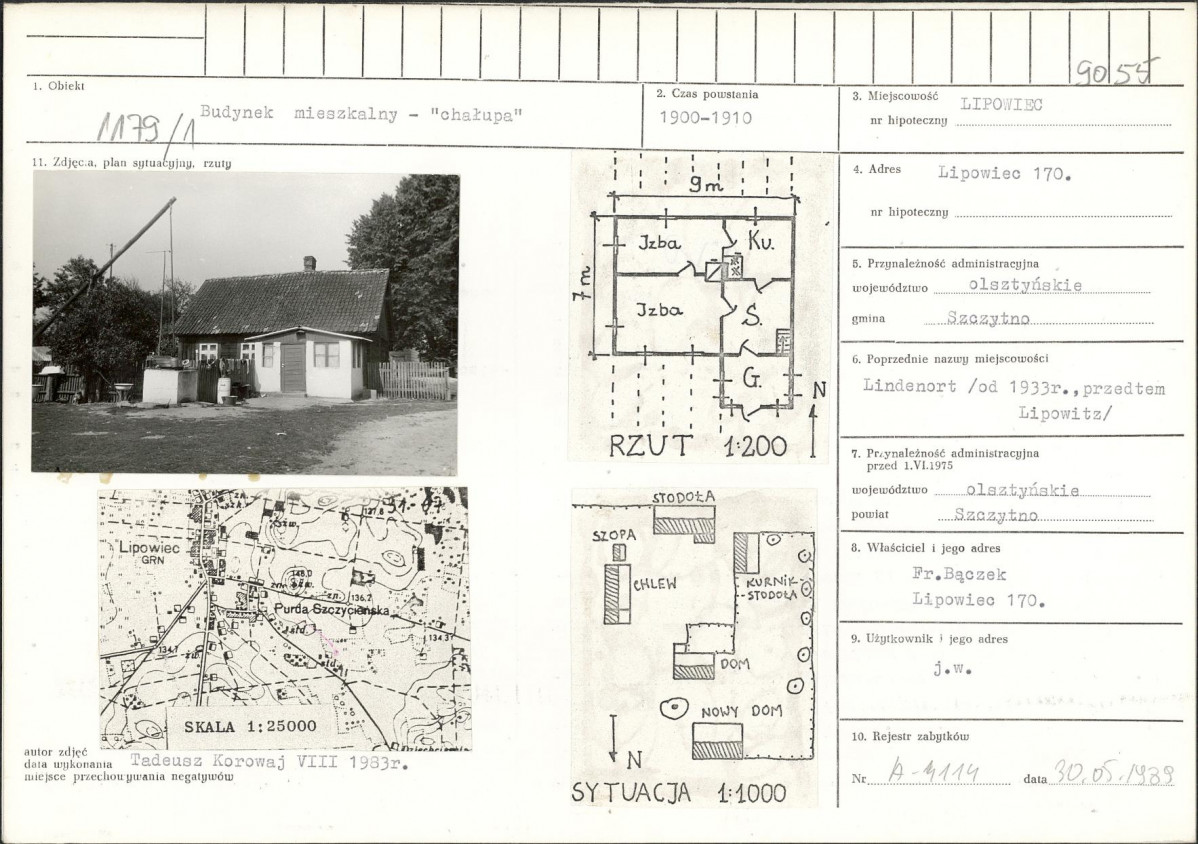 9055
1. Obiekt
Budynek mieszkalny - "chałupa"
1179/1
2. Czas powstania
1900-1910
3. Miejscowość LIPOWIEC
nr hipoteczny
11. Zdjęcia, plan sytuacyjny, rzuty
4. Adres Lipowiec 170.
nr hipoteczny
5. Przynależność administracyjna
województwo olsztyńskie
gmina Szczytno
6. Poprzednie nazwy miejscowości
Lindenort /od 1933r.,przedtem
Lipowitz/
7. Przynależność administracyjna
przed 1.VI.1975
województwo olsztyńskie
powiat Szczytno
8. Właściciel i jego adres
Fr.Bączek
Lipowiec 170.
9. Użytkownik i jego adres
j.w.
10. Rejestr zabytków
Nr A-4114 data 30.05.1989
9m
7m
Izba
Ku.
Izba
S.
G.
N
RZUT 1:200
Lipowiec
GRN
127,8
146,0
zw.
zn.
136,2
Purda Szczycieńska
134,3
std.
134,7
std.
SKALA 1:25000
STODOŁA
SZOPA
CHLEW
KURNIK-
STODOŁA
DOM
NOWY DOM
N
SYTUACJA 1:1000
autor zdjęć
data wykonania Tadeusz Korowaj VIII 1983r.
miejsce przechowywania negatywów